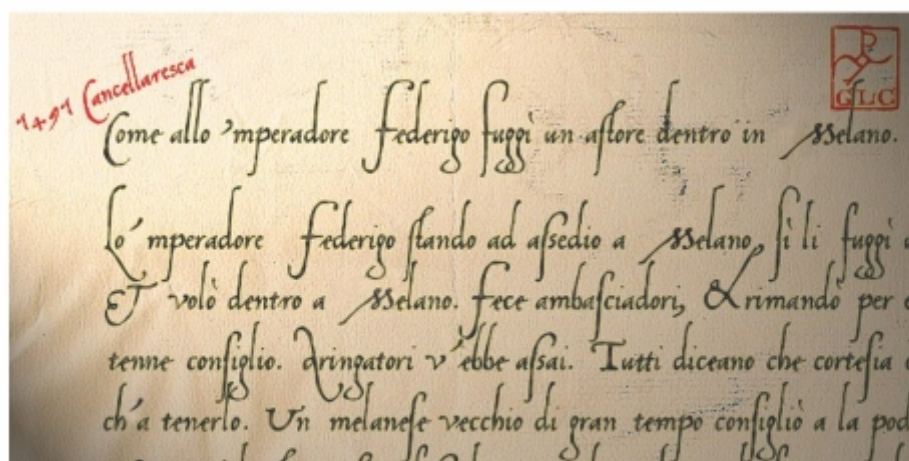 1491 Cancellaresca
GLC
Come allo 'mperadore Federigo fuggì un aſtore dentro in Melano.
Lo 'mperadore Federigo ſtando ad aſsedio a Melano, ſì li fuggì
ET volò dentro a Melano. Fece ambaſciadori, & rimandò per
tenne conſiglio. Aringatori v'ebbe aſsai. Tutti diceano che corteſia
ch'a tenerlo. Un melaneſe vecchio di gran tempo conſigliò a la pod